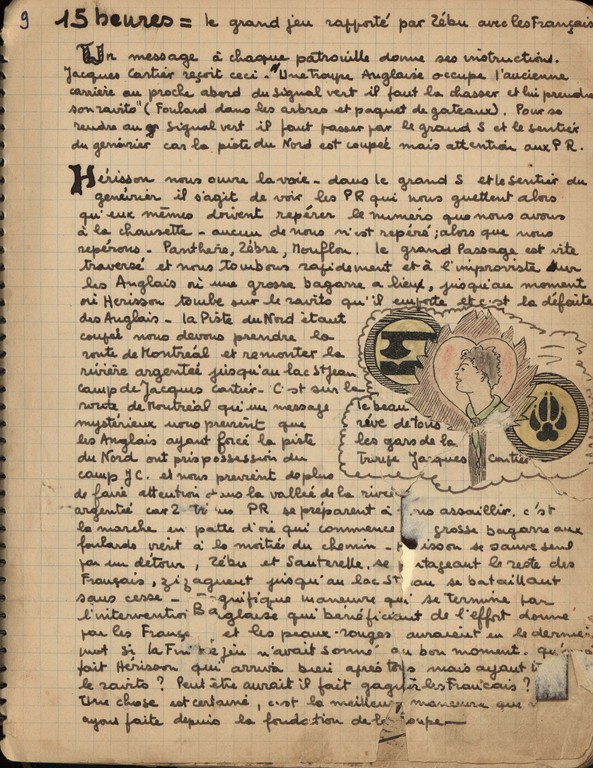 9 15 heures = le grand jeu rapporté par Zébu avec les Français
Un message à chaque patrouille donne ses instructions.
Jacques Cartier reçoit ceci - "Une troupe Anglaise occupe l'ancienne
carrière au proche abord du signal vert il faut la chasser et lui prendre
son ravito" (Foulard dans les arbres et paquet de gateaux). Pour se
rendre au Signal vert il faut passer par le grand S et le sentier
du genévrier car la piste du Nord est coupée mais attention aux P R.
Hérisson nous ouvre la voie - dans le grand S et le sentier du
genévrier il s'agit de voir les PR qui nous guettent alors
qu'eux mêmes doivent repérer le numéro que nous avons
à la chaussette - aucun de nous n'est repéré ; alors que nous
repérons - Panthère, Zébre, Mouflon. le grand Passage est vite
traversé et nous tombons rapidement et à l'improviste sur
les Anglais où une grosse bagarre a lieux, jusqu'au moment
où Herisson tombe sur le ravito qu'il emporte et c'est la défaite
des Anglais - la Piste du Nord étant
coupée nous devons prendre la
route de Montréal et remonter la
rivière argentée jusqu'au lac St Jean
camp de Jacques Cartier - C'est sur la
route de Montréal qu'un message
mystérieux nous prévient que
les Anglais ayant forcé la piste
du Nord ont pris possession du
camp J C. et nous prévient de plus
le beau
rêve de tous
les gars de la
Troupe Jacques Cartier
de faire attention dans la vallée de la
argentée car 2 PR se préparent à assaillir. c'est
la marche en patte d'oie qui commence grosse bagarre aux
foulards vient à la moitiée du chemin - se sauve seul
par un détour, Zébu et Sauterelle, se partageant le reste des
Français, zizaguent jusqu'au lac St se bataillant
sans cesse - manœuvre qui se termine par
l'intervention anglaise qui bénéficiant de l'effort donné
par les et les peaux-rouges auraient eu le dernier
mot si la Fin de jeu n'avait sonné au bon moment.
fait Hérisson qui arriva bien après tous mais ayant
le ravito ? Peut être aurait il fait gagner les Français ?
Une chose est certaine, c'est la meilleure manœuvre que
ayons faite depuis la fondation de la